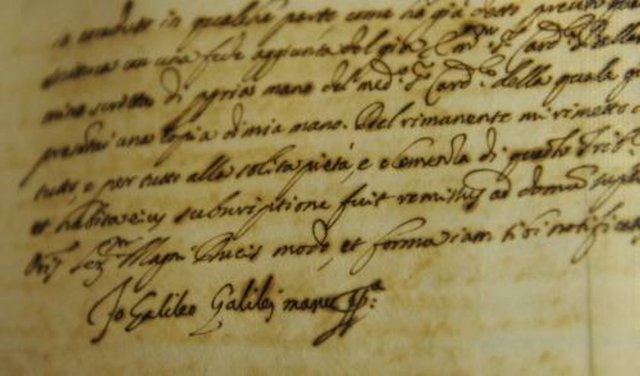 condutto in qualche parte, come ho già detto
scrittura con una fede aggiunta del già Em.mo S.r Card.le
mino scritta di propria mano del med.o S.r Card.le, della quale
presentai una copia di mia mano. Del rimanente mi rimetto
tutto, e per tutto alla solita pietà, e clemenza di questo Trib.
et habita eius subscriptione fuit remissus ad domum
Magni Ducis modo, et forma iam sibi notificatis
Io Galileo Galilei manu pp.a